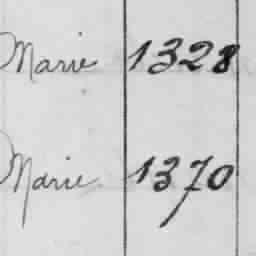 Marie 1328
Marie 1370